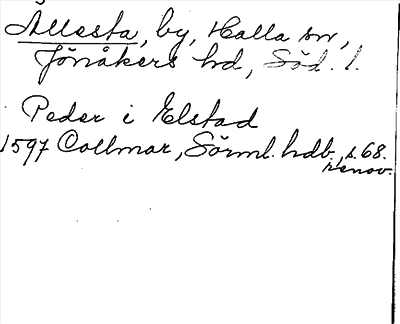 Ållesta, by, Halla sn,
Jönåkers hd, Söd. l.
Peder i Elstad
1597 Collmar, Sörml. hdb., s. 68.
renov.